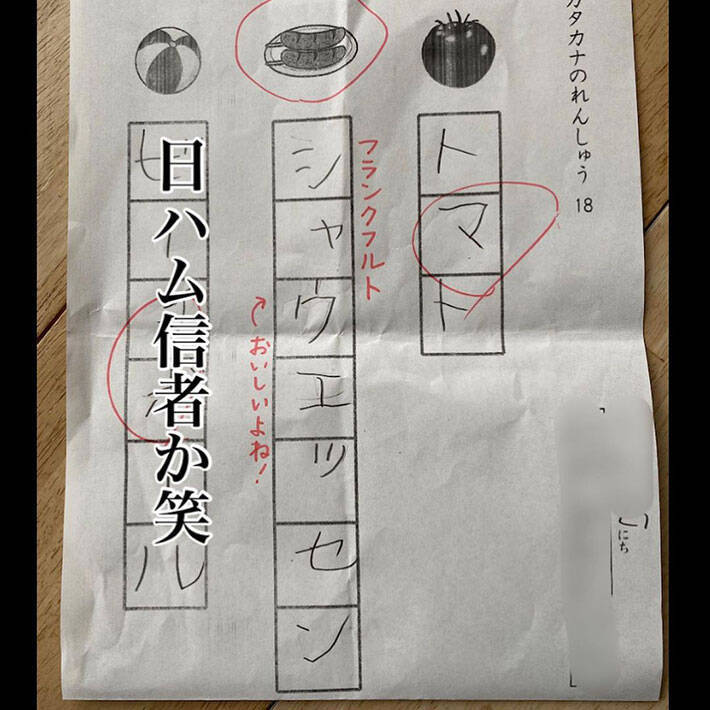 カタカナのれんしゅう 18
トマト
フランクフルト
シャウエッセン
おいしいよね!
日ハム信者か笑
ル
にち